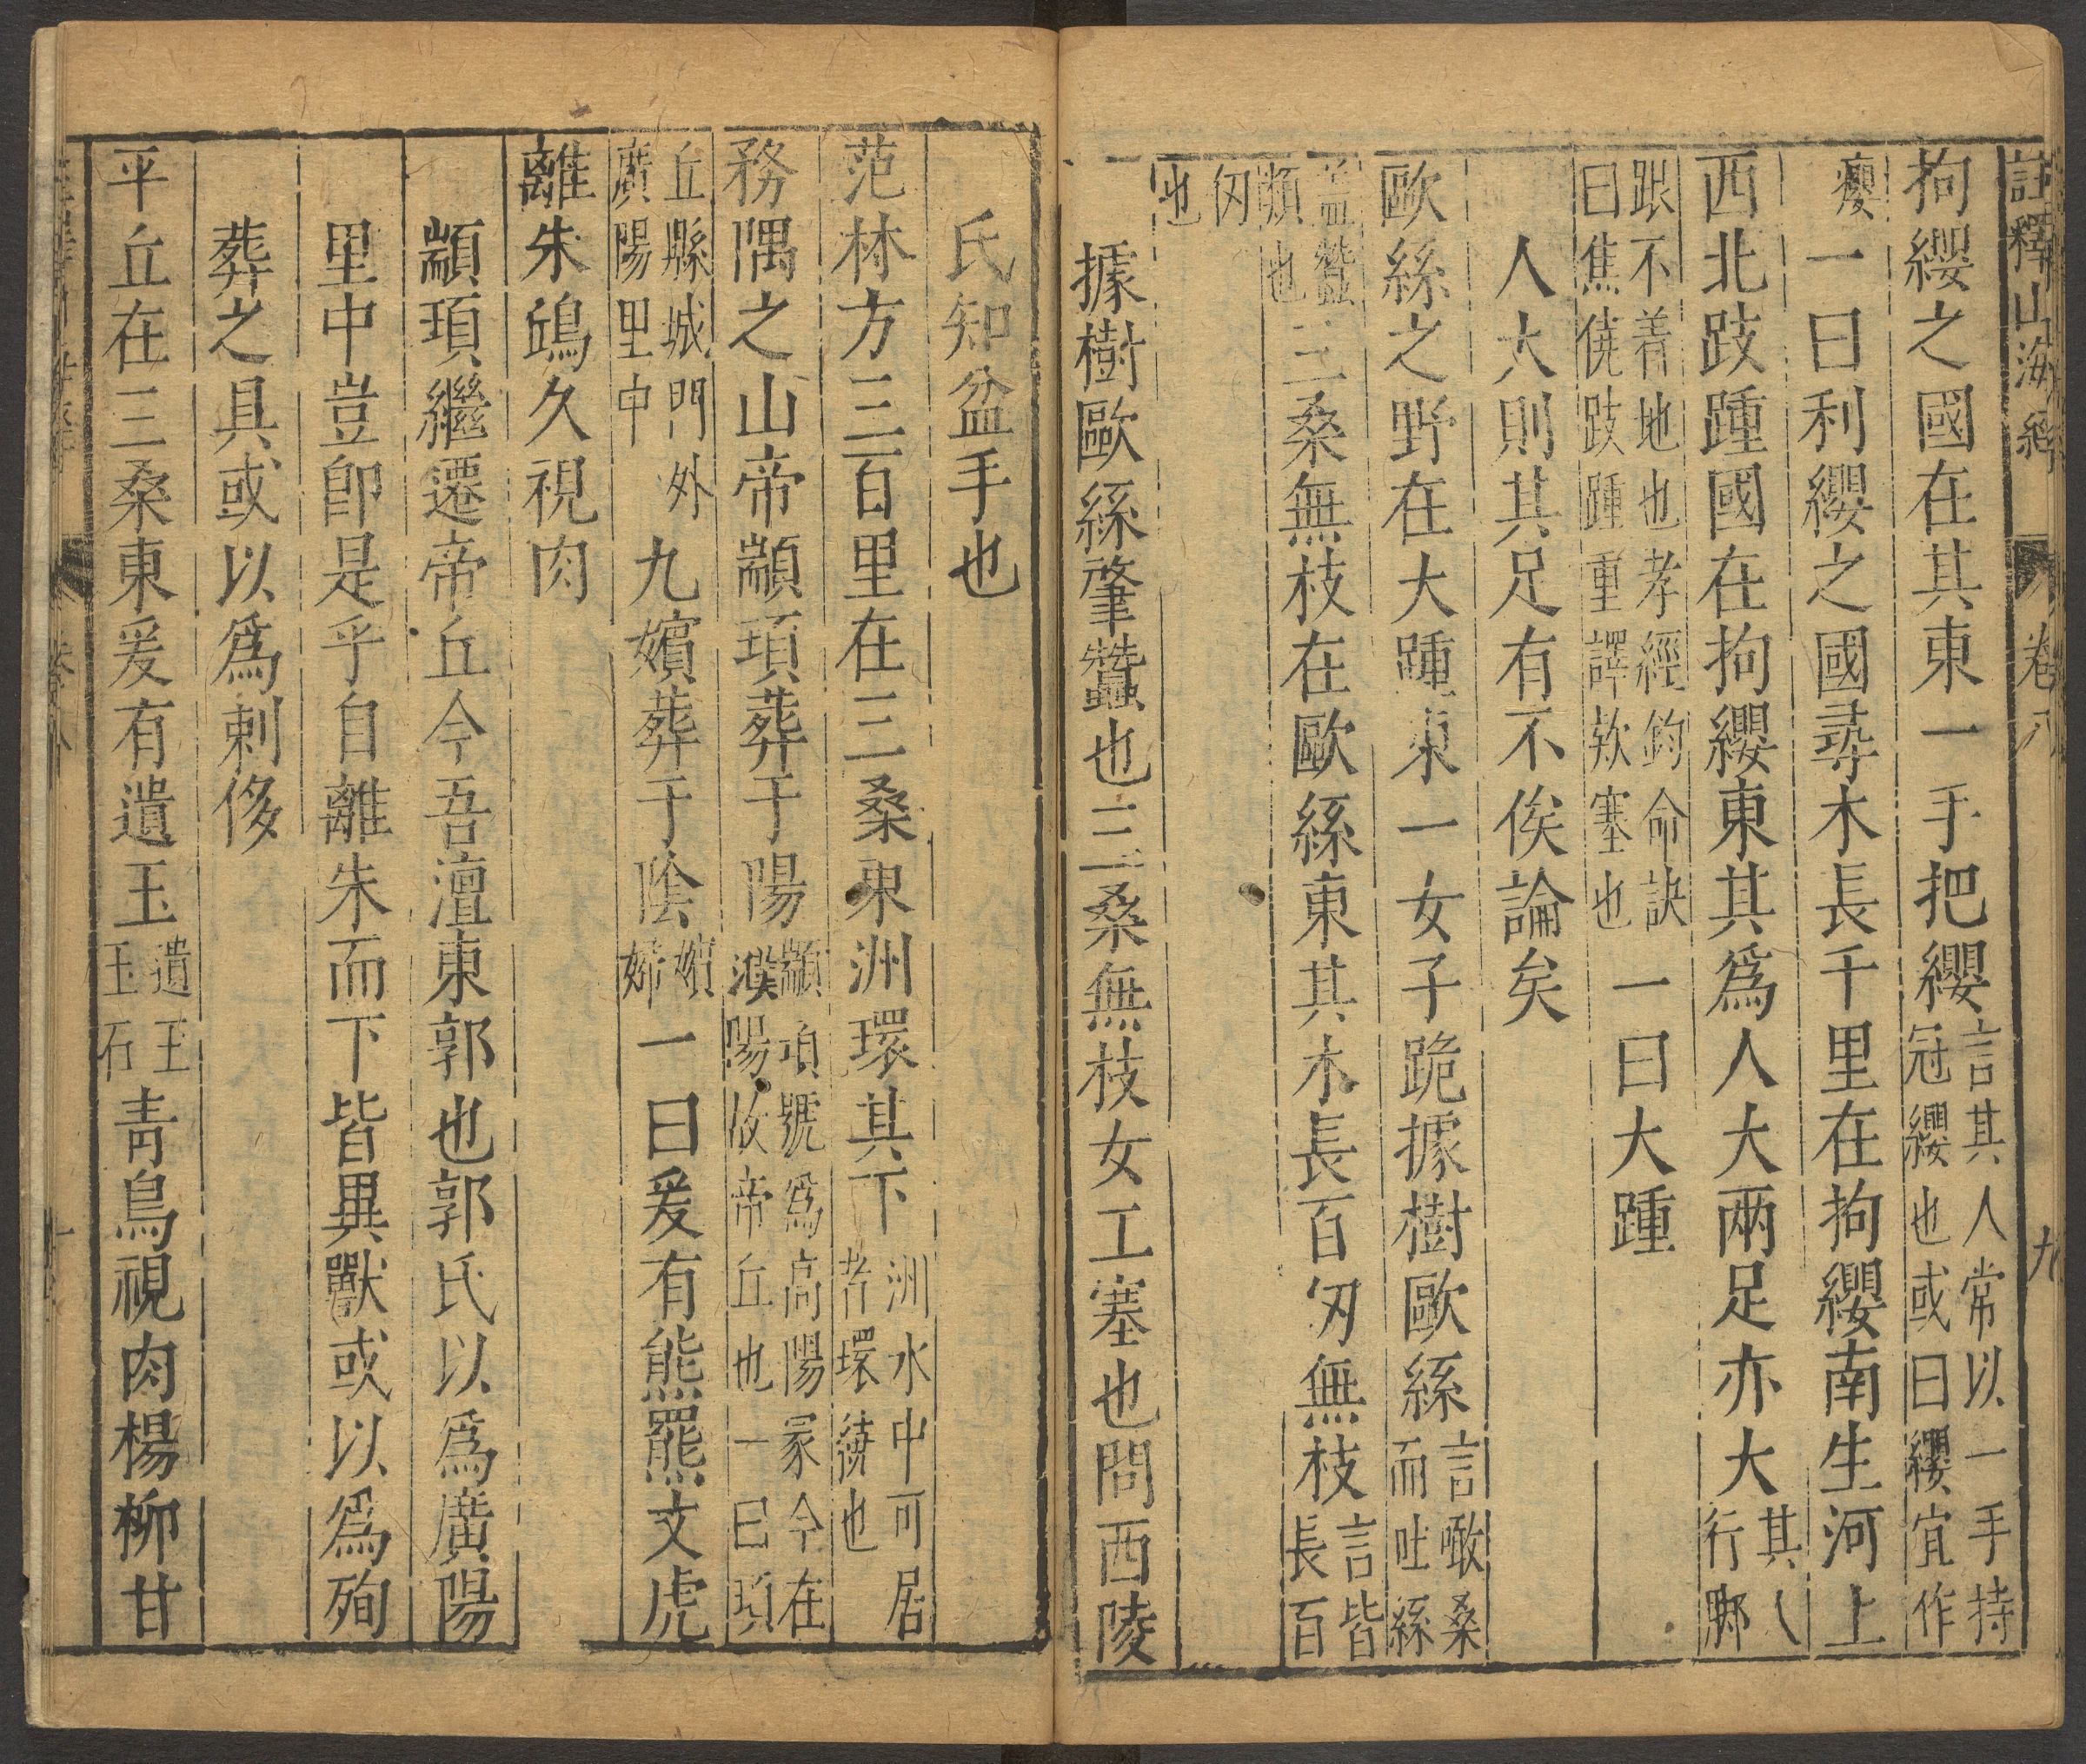 註釋山海經 卷八 九
拘纓之國在其東一手把纓言其人常以一手持冠纓也或曰纓宜作
癭一曰利纓之國尋木長千里在拘纓南生河上
西北跂踵國在拘纓東其爲人大兩足亦大其人行脚
跟不着地也孝經鈎命訣曰焦僥跂踵重譯欵塞也一曰大踵
人大則其足有不俟論矣
歐絲之野在大踵東一女子跪據樹歐絲言噉桑而吐絲
蓋蠶類也三桑無枝在歐絲東其木長百仞無枝言皆長百
仞也
據樹歐絲肇蠶也三桑無枝女工塞也問西陵
氏知盆手也
范林方三百里在三桑東洲環其下洲水中可居者環繞也
務隅之山帝顓頊葬于陽顓頊號爲高陽冢今在濮陽故帝丘也一曰頊
丘縣城門外廣陽里中九嬪葬于陰嬪婦一曰爰有熊羆文虎
離朱鴟久視肉
顓頊繼遷帝丘今吾澶東郭也郭氏以爲廣陽
里中豈卽是乎自離朱而下皆異獸或以爲殉
葬之具或以爲刺侈
平丘在三桑東爰有遺玉遺玉玉石青鳥視肉楊柳甘